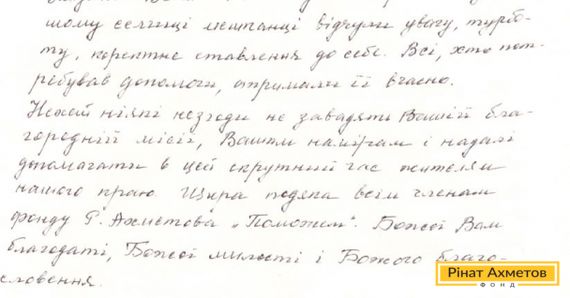 шому селищі мешканці відчули увагу, турбо-
ту, коректне ставлення до себе. Всі, хто пот-
ребував допомоги, отримали її вчасно.
Нехай ніякі незгоди не завадять Вашій бла-
городній місії, Вашим намірам і надалі
допомагати в цей скрутний час жителям
нашого краю. Щира подяка всім членам
фонду Р. Ахметова „Поможем". Божої Вам
благодаті, Божої милості і Божого благо-
словення.
Рінат Ахметов
ФОНД